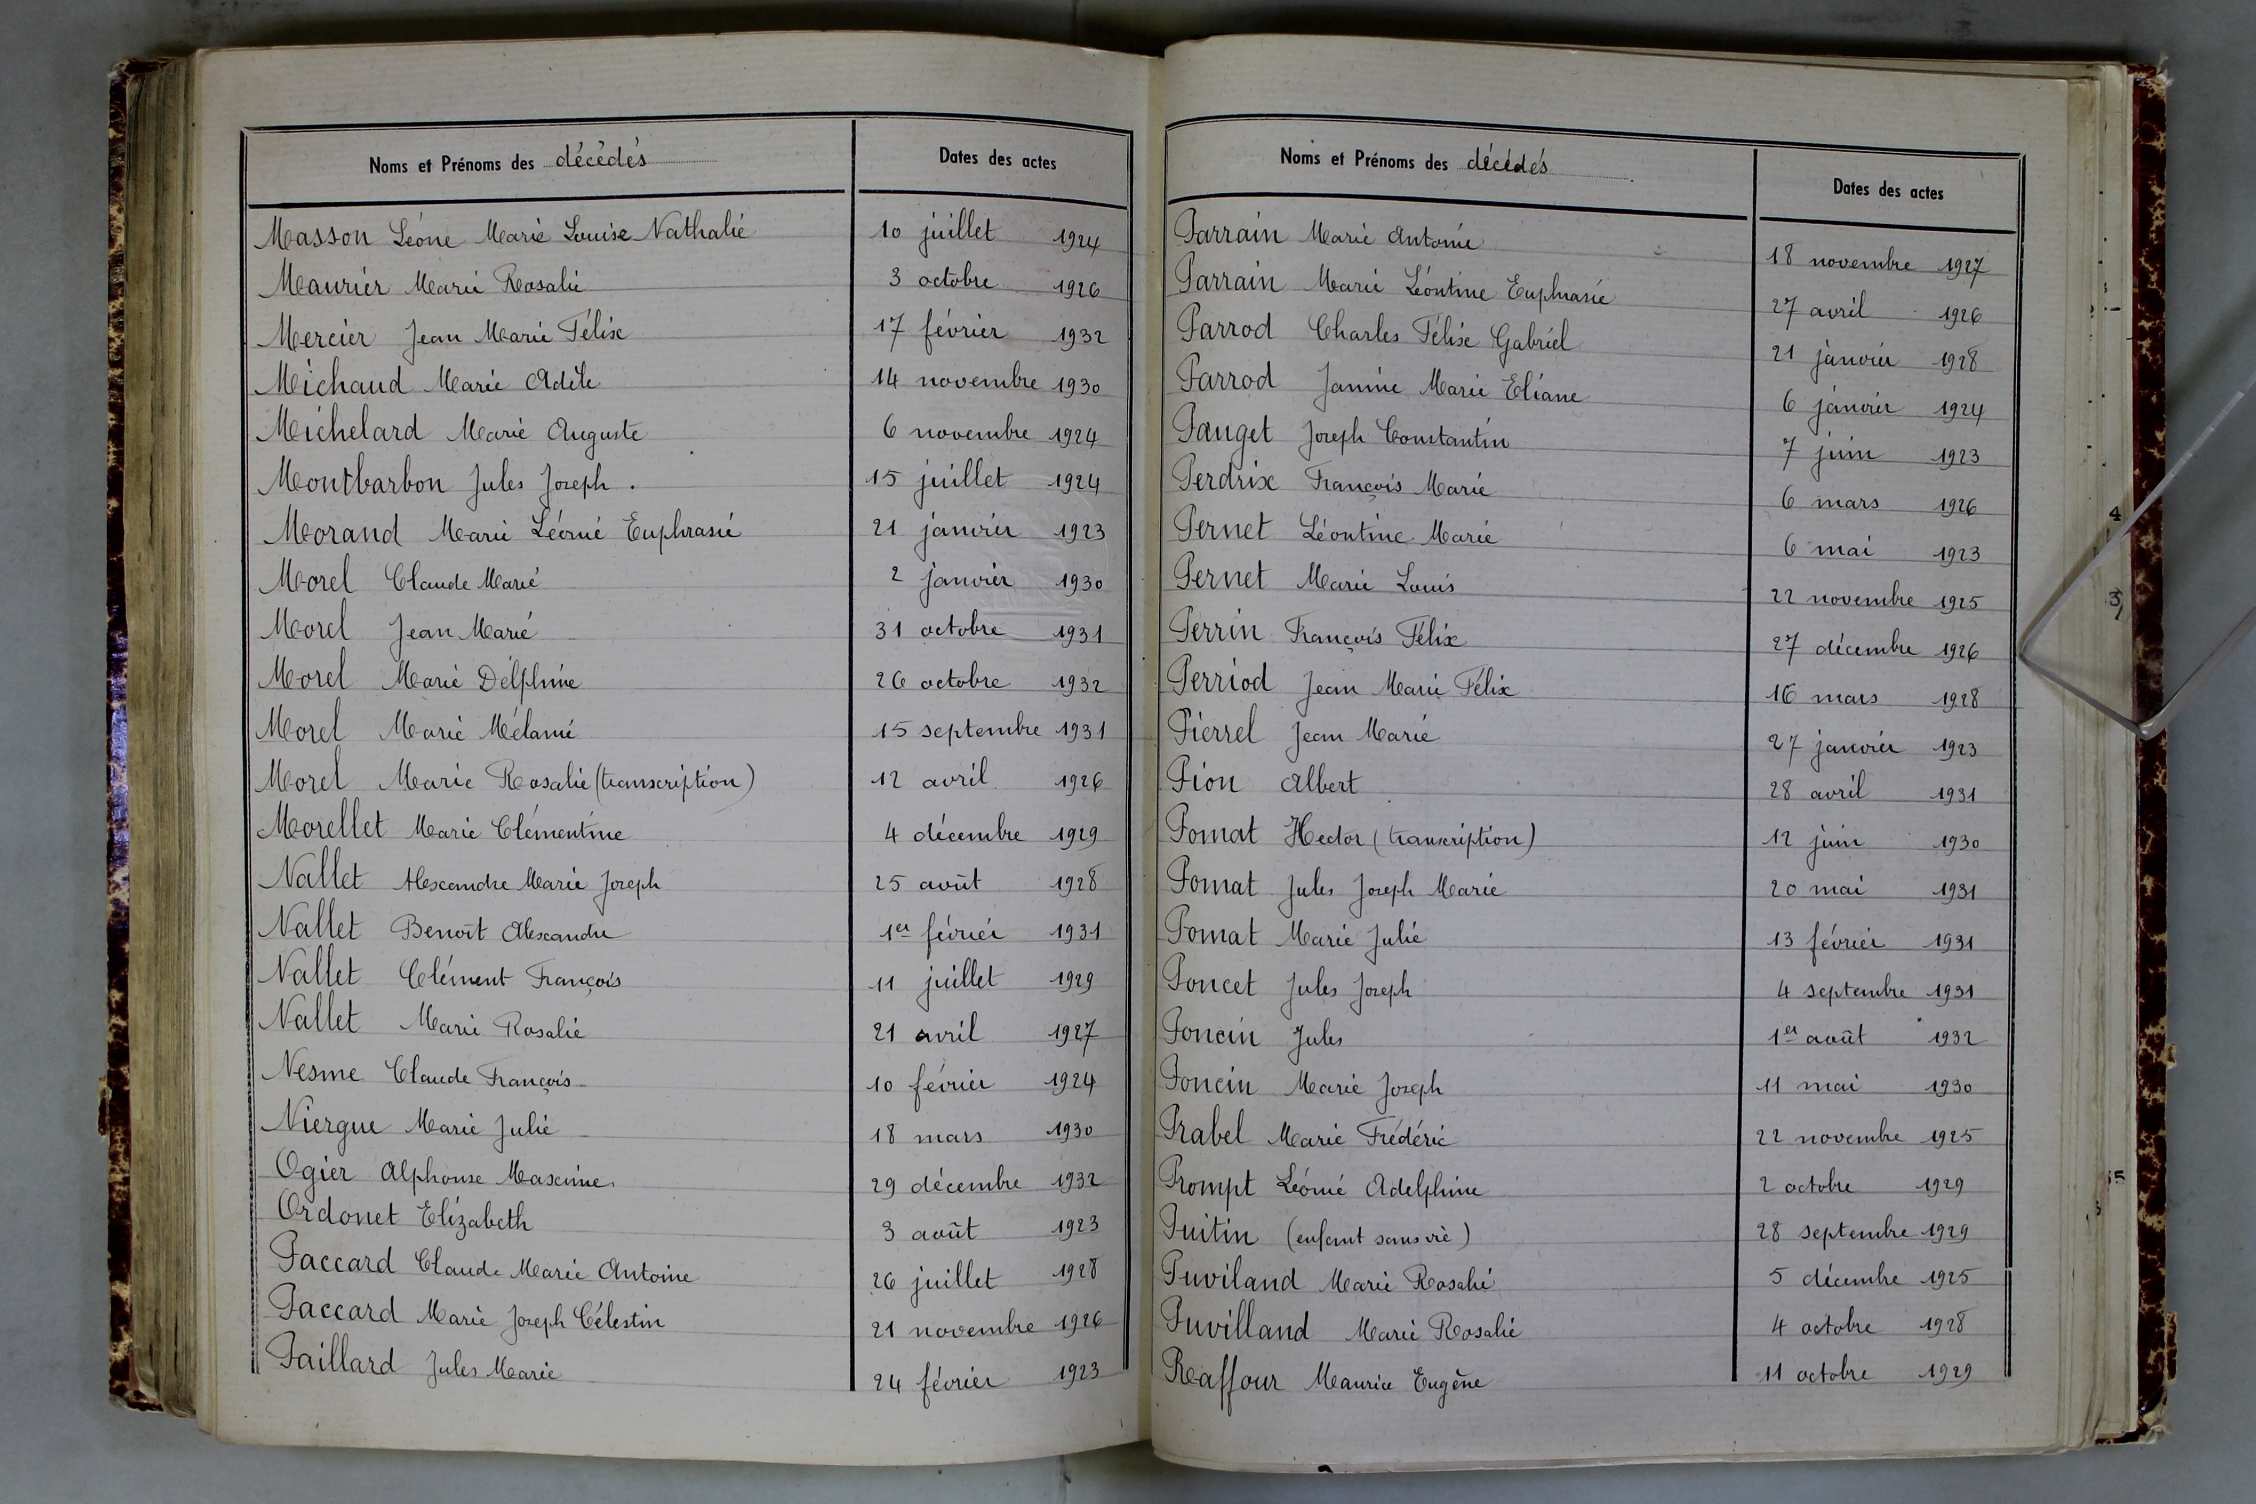 Noms et Prénoms des décédés Dates des actes
Masson Léone Marie Louise Nathalie 10 juillet 1924
Maurier Marie Rosalie 3 octobre 1926
Mercier Jean Marie Félix 17 février 1932
Michaud Marie Adèle 14 novembre 1930
Michelard Marie Auguste 6 novembre 1924
Montbarbon Jules Joseph. 15 juillet 1924
Morand Marie Léonie Euphrasie 21 janvier 1923
Morel Claude Marie 2 janvier 1930
Morel Jean Marie 31 octobre 1931
Morel Marie Delphine 26 octobre 1932
Morel Marie Mélanie 15 septembre 1931
Morel Marie Rosalie (transcription) 12 avril 1926
Morellet Marie Clémentine 4 décembre 1929
Nallet Alexandre Marie Joseph 25 août 1928
Nallet Benoît Alexandre 1er février 1931
Nallet Clément François 11 juillet 1929
Nallet Marie Rosalie 21 avril 1927
Nesme Claude François 10 février 1924
Niergue Marie Julie 18 mars 1930
Ogier Alphonse Maxime 29 décembre 1932
Ordonet Elizabeth 3 août 1923
Paccard Claude Marie Antoine 26 juillet 1928
Paccard Marie Joseph Célestin 21 novembre 1926
Paillard Jules Marie 24 février 1923
Noms et Prénoms des décédés Dates des actes
Parrain Marie Antonie 18 novembre 1927
Parrain Marie Léontine Euphrasie 27 avril 1926
Parrod Charles Félix Gabriel 21 janvier 1928
Parrod Janine Marie Eliane 6 janvier 1924
Pauget Joseph Constantin 7 juin 1923
Perdrix François Marie 6 mars 1926
Pernet Léontine Marie 6 mai 1923
Pernet Marie Louis 22 novembre 1925
Perrin François Félix 27 décembre 1926
Perriod Jean Marie Félix 16 mars 1928
Pierrel Jean Marie 27 janvier 1923
Pion Albert 28 avril 1931
Pomat Hector (transcription) 12 juin 1930
Pomat Jules Joseph Marie 20 mai 1931
Pomat Marie Julie 13 février 1931
Poncet Jules Joseph 4 septembre 1931
Poncin Jules 1er août 1932
Poncin Marie Joseph 11 mai 1930
Prabel Marie Frédéric 22 novembre 1925
Prompt Léonie Adelphine 2 octobre 1929
Puitin (enfant sans vie) 28 septembre 1929
Puviland Marie Rosalie 5 décembre 1925
Puvilland Marie Rosalie 4 octobre 1928
Reaffour Maurice Eugène 11 octobre 1929